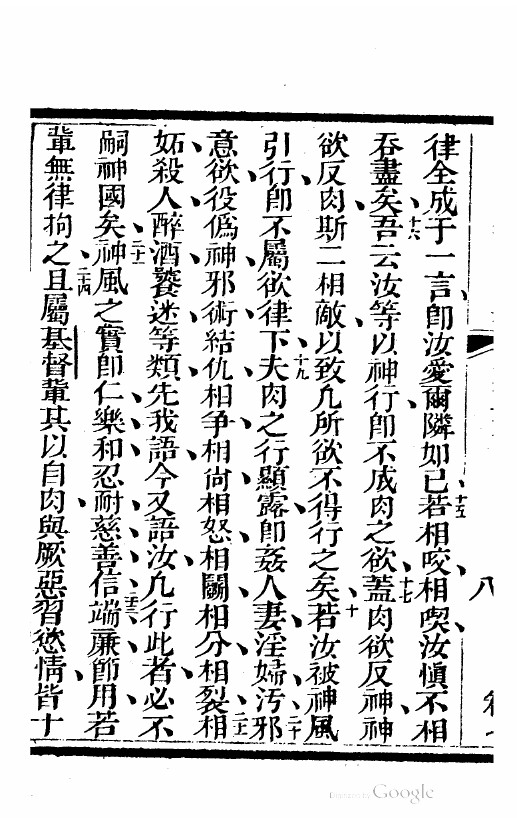 律全成于一言卽汝愛爾隣如己十五若相咬相喫汝愼不相
吞盡矣十六吾云汝等以神行卽不成肉之欲十七蓋肉欲反神神
欲反肉斯二相敵以致凡所欲不得行之矣十八若汝被神風
引行卽不屬欲律下十九夫肉之行顯露卽姦人妻淫婦汚邪二十
意欲役偽神邪術結仇相争相尙相怒相鬭相分相裂相二十一
妬殺人醉酒饕迷等類先我語今又語汝凡行此者必不
嗣神國矣二十二神風之實卽仁樂和忍耐慈善信端二十三廉節用若
軰無律拘之且二十四屬基督軰其以自肉與厥惡習慾情皆十
八
Digitized by Google